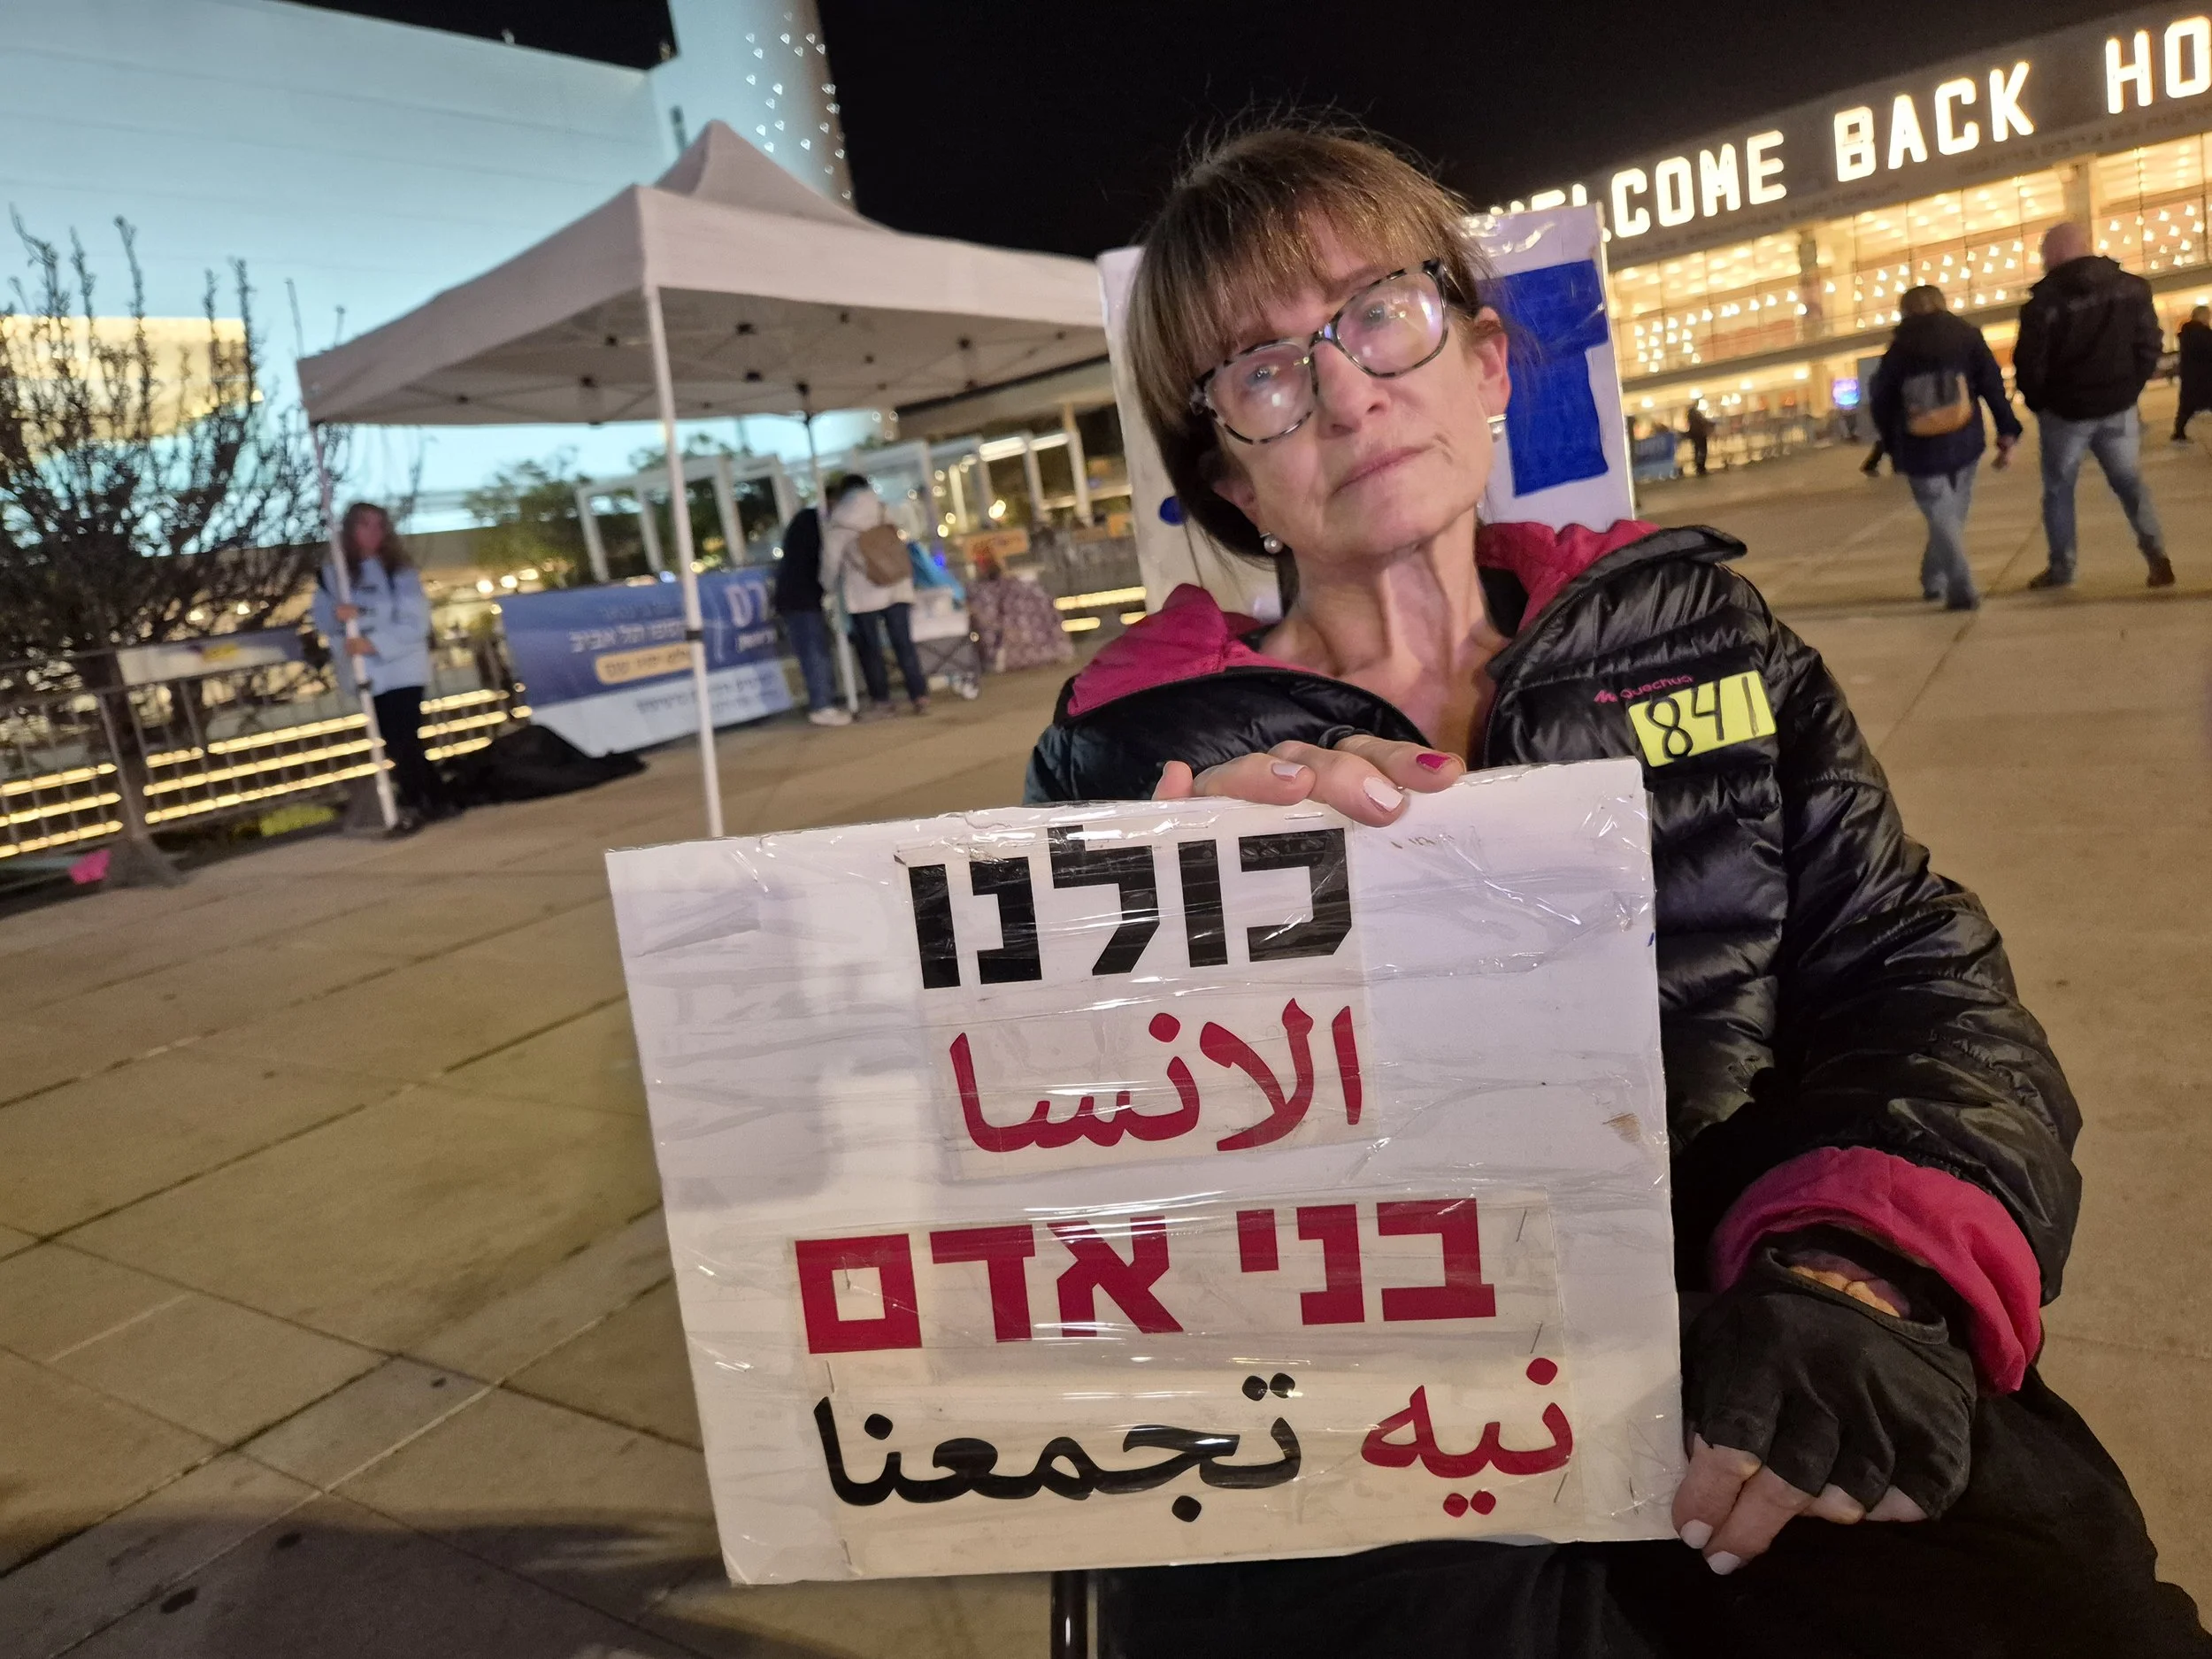 WELCOME BACK HO
Quechua
841
כולנו
الانسا
בני אדם
نيه تجمعنا